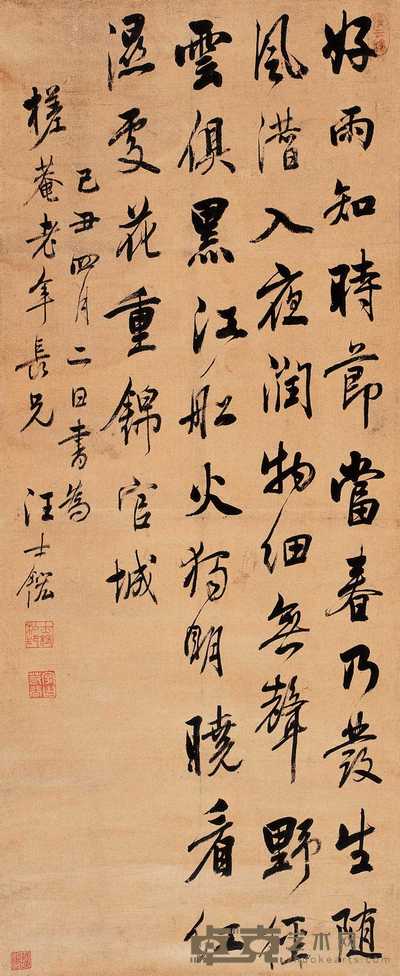 好雨知時節當春乃發生随
風潛入夜潤物細無聲野徑
雲俱黑江船火獨明曉看紅
濕處花重錦官城
己丑四月二日書為
槎菴老年長兄 汪士鋐